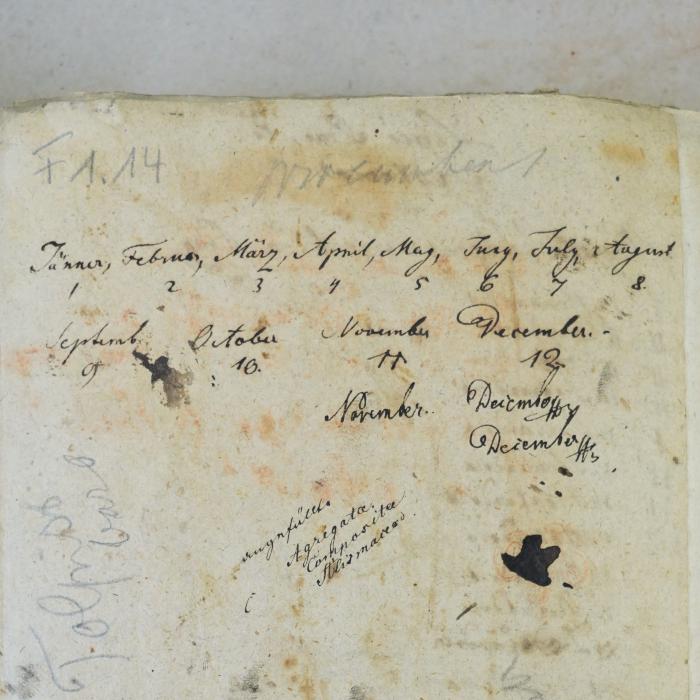 F 1.14
Jänner, Februar, März, April, May, Juny, July, August
1 2 3 4 5 6 7 8.
Septemb. October November December.-
9 10. 11 12
November.. December
December
Agregatae.
Compositae